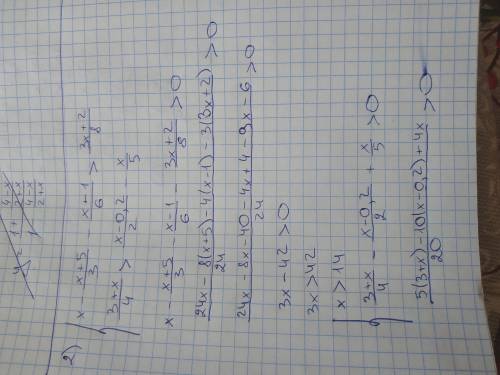 2)
x - \frac{x+5}{3} - \frac{x-1}{6} > \frac{3x+2}{8}
\frac{3+x}{4} > \frac{x-0,2}{2} - \frac{x}{5}
x - \frac{x+5}{3} - \frac{x-1}{6} - \frac{3x+2}{8} > 0
\frac{24x - 8(x+5) - 4(x-1) - 3(3x+2)}{24} > 0
\frac{24x - 8x - 40 - 4x + 4 - 9x - 6}{24} > 0
3x - 42 > 0
3x > 42
x > 14
\frac{3+x}{4} - \frac{x-0,2}{2} + \frac{x}{5} > 0
\frac{5(3+x) - 10(x-0,2) + 4x}{20} > 0